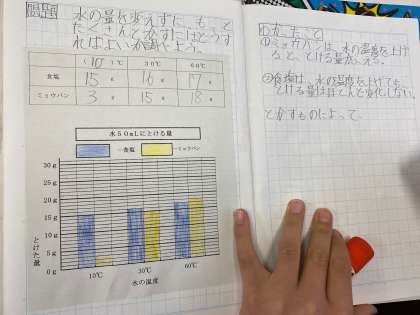 問題 水の量を変えずに、もっと
たくさんとかすにはどうす
ればよいか調べよう。
(10)℃ 30℃ 60℃
食塩 15g 16g 17g
ミョウバン 3g 15g 18g
水50mLにとける量
─食塩 ─ミョウバン
30g
25g
20g
15g
10g
5g
0g
とけた量
10℃ 30℃ 60℃
水の温度
わかったこと
①ミョウバンは、水の温度を上げ
ると、とける量がふえる。
②食塩は、水の温度を上げても、
とける量はほとんど変化しない。
とかすものによって、